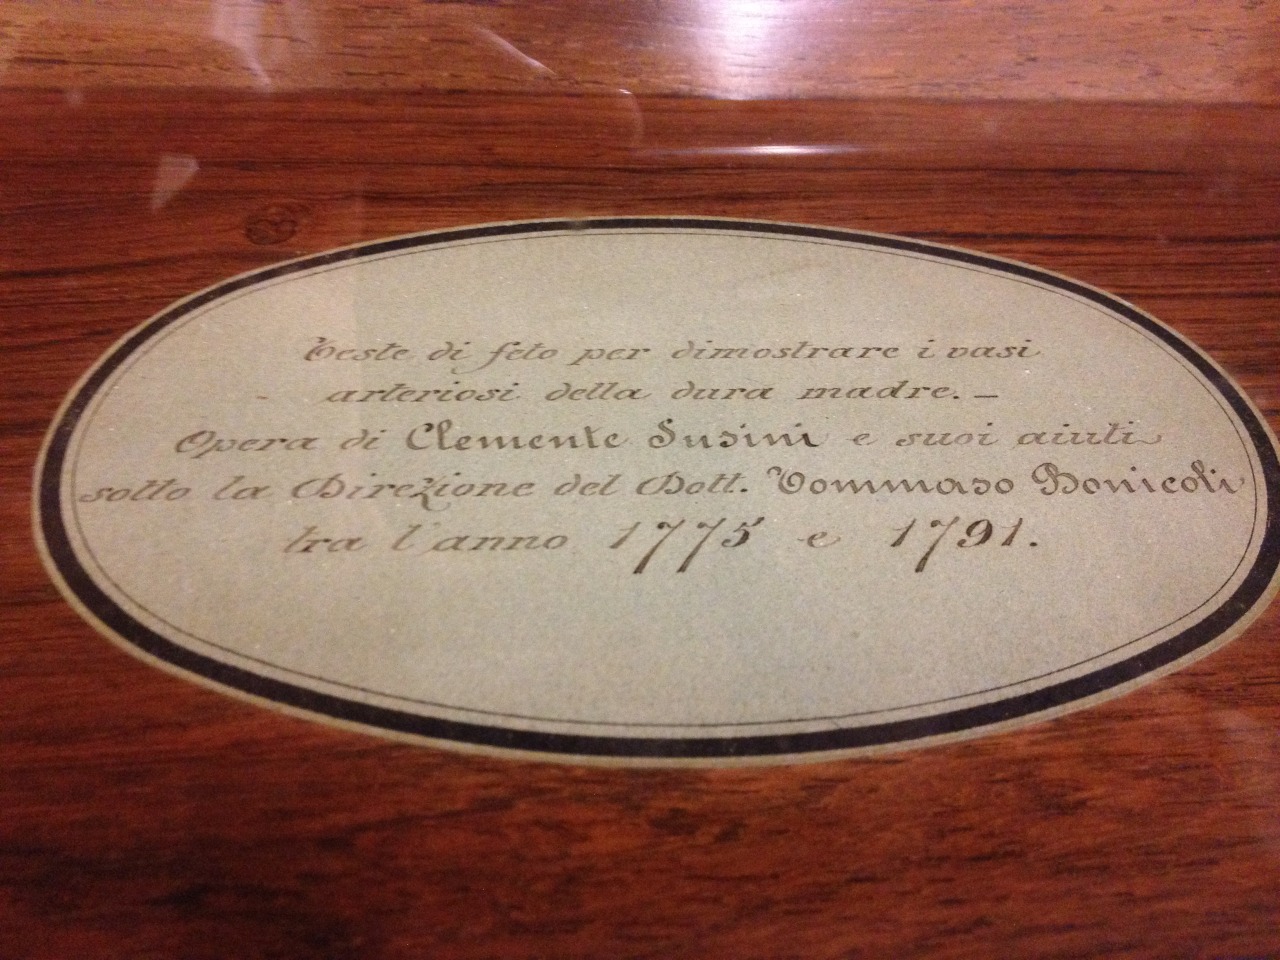 Teste di feto per dimostrare i vasi
arteriosi della dura madre. _
Opera di Clemente Susini e suoi aiuti
sotto la Direzione del Dott. Tommaso Bonicoli
tra l'anno 1775 e 1791.